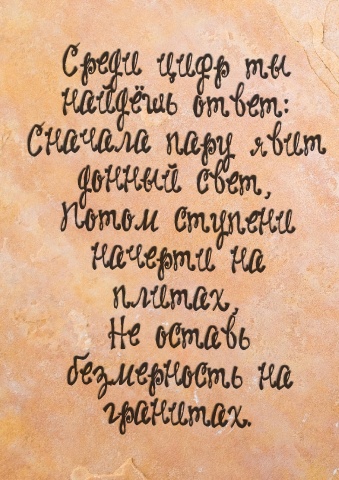 Среди цифр ты
найдёшь ответ:
Сначала пару явит
донный свет,
Потом ступени
начерти на
плитах,
Не оставь
безмерность на
гранитах.